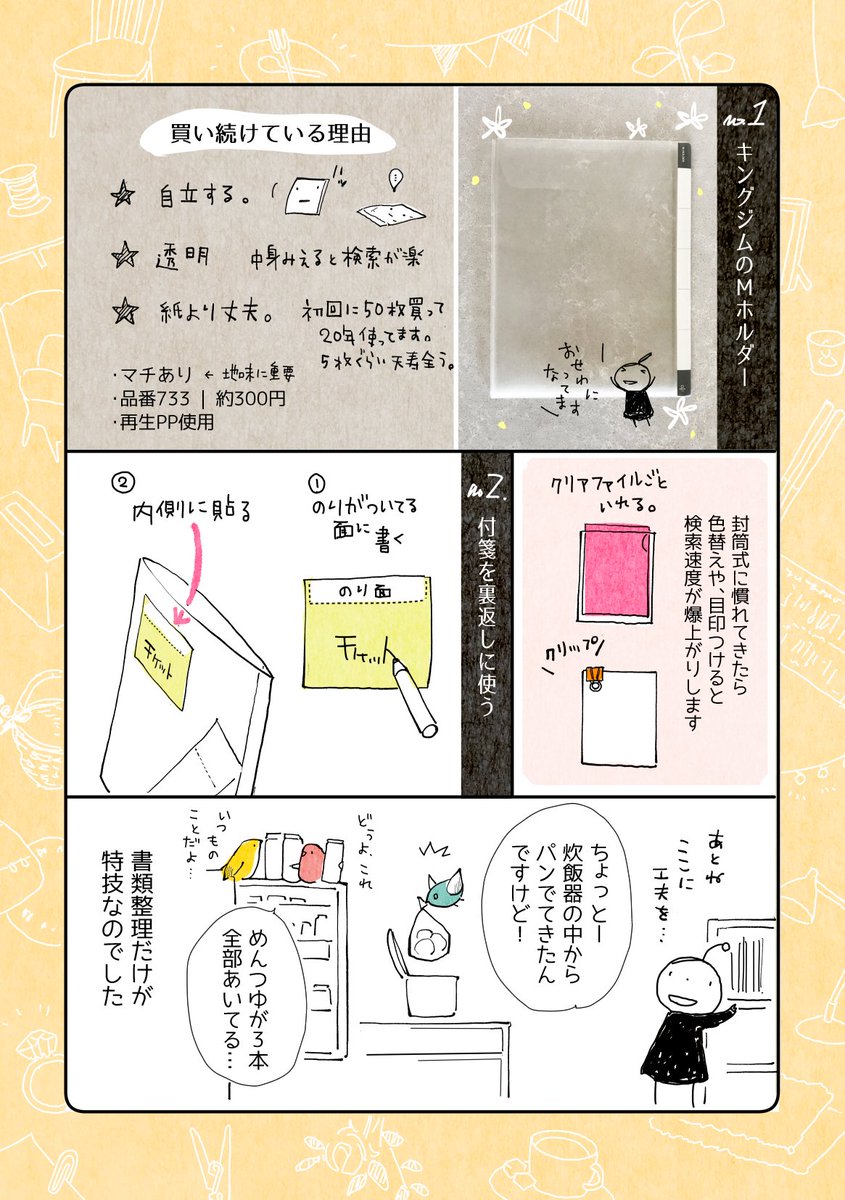 no.1
キングジムのMホルダー
おせわに
なってます
買い続けている理由
★ 自立する。
★ 透明 中身みえると検索が楽
★ 紙より丈夫。 初回に50枚買って
20年使ってます。
5枚ぐらい天寿全う。
・マチあり ← 地味に重要
・品番733 | 約300円
・再生PP使用
封筒式に慣れてきたら
色替えや、目印つけると
検索速度が爆上がりします
クリアファイルごと
いれる。
クリップ
no2.
付箋を裏返しに使う
①
のりがついてる
面に書く
のり面
チケット
②
内側に貼る
チケット
あとね
ここに
工夫を…
ちょっとー
炊飯器の中から
パンでてきたん
ですけど!
どうよ、これ
いつもの
ことだよ…
めんつゆが3本
全部あいてる…
書類整理だけが
特技なのでした